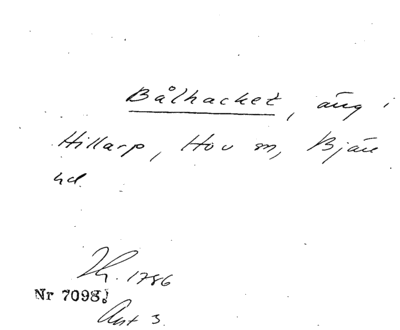 Bålhacket, äng i
Hillarp, Hov sn, Bjäre
hd.
1786
Nr 7098
Akt 3.